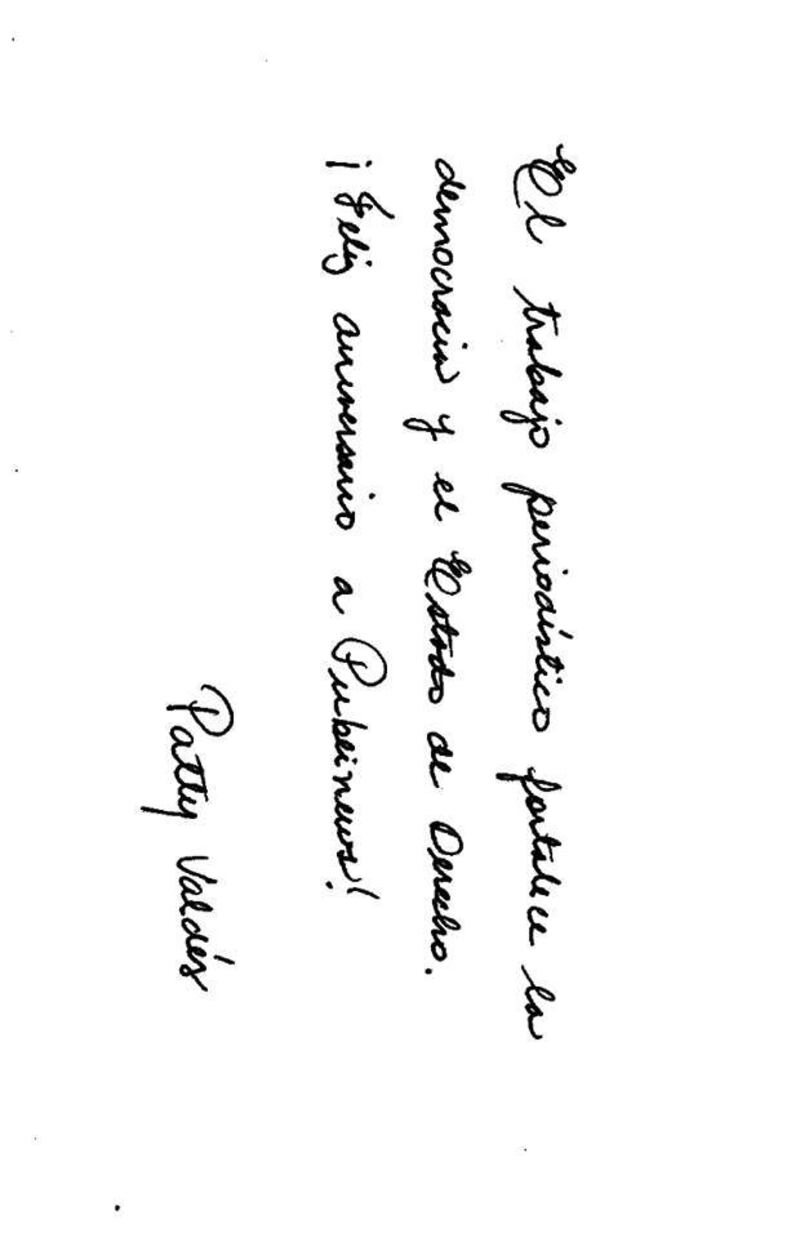 El trabajo periodístico fortalece la
democracia y el Estado de Derecho.
¡Feliz aniversario a Pubeinews!
Patty Valdés